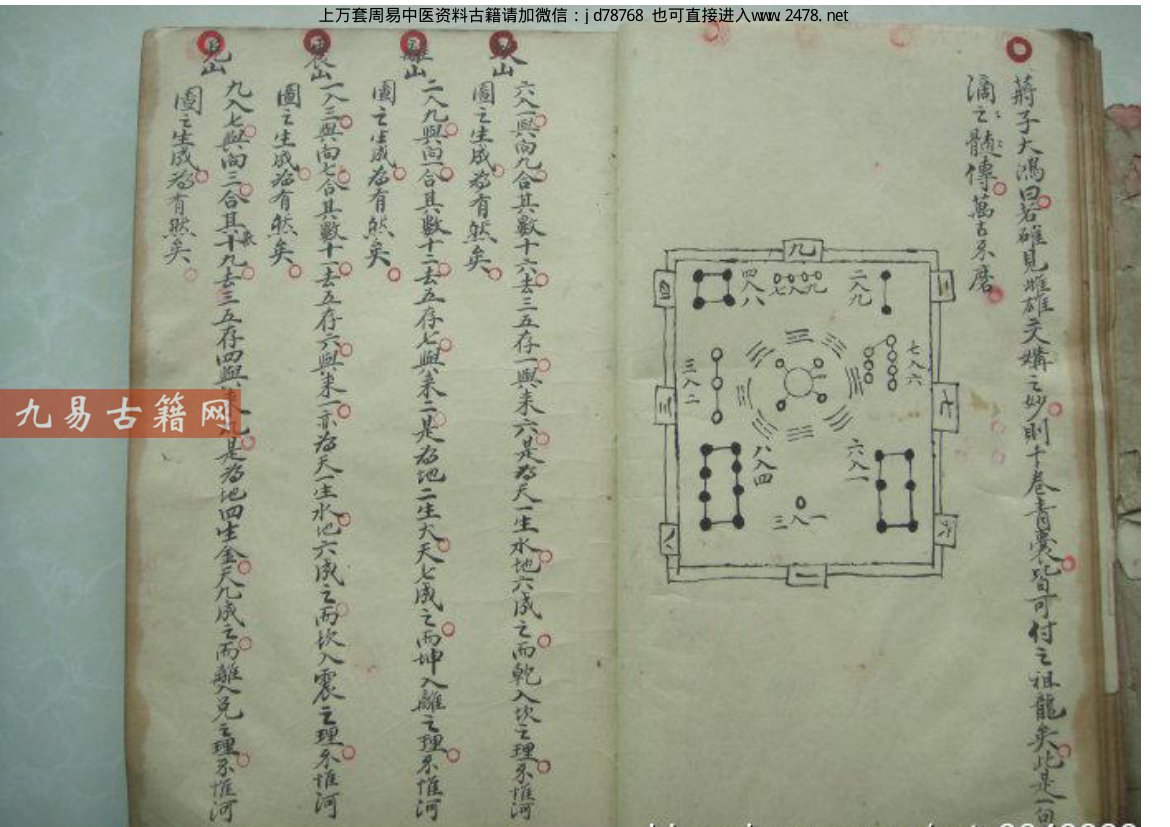 上万套周易中医资料古籍请加微信：jd78768 也可直接进入www.2478.net
蔣子大鴻曰若確見雌雄交媾之妙則千卷青囊皆可付之祖龍矣此是一句
滴之髓傳萬古不磨
九
四
二
四入八
七入九
二入九
三
三入二
七入六
七
八入四
六入一
三入一
八
一
六
坎山
六入一與向九合其數十六去三五存一與來六是為天一生水地六成之而乾入坎之理不惟河
圖之生成為有然矣
離山
二入九與向一合其數十二去五存七與來二是為地二生火天七成之而坤入離之理不惟河
圖之生成為有然矣
震山
一入三與向七合其數十一去五存六與來一亦為天一生水地六成之而坎入震之理不惟河
圖之生成為有然矣
兌山
九入七與向三合其數十九去三五存四與來九是為地四生金天九成之而離入兌之理不惟河
圖之生成為有然矣
九易古籍网